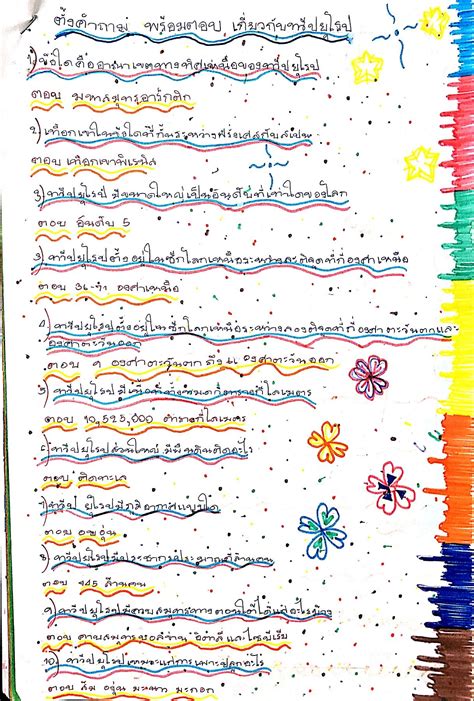 ตั้งคำถาม พร้อมตอบ เกี่ยวกับทวีปยุโรป
1) ข้อใดคืออาณาเขตทางทิศเหนือของทวีปยุโรป
ตอบ มหาสมุทรอาร์กติก
2) เทือกเขาในข้อใดที่กั้นระหว่างฝรั่งเศสกับสเปน
ตอบ เทือกเขาพิเรนีส
3) ทวีปยุโรป มีขนาดใหญ่เป็นอันดับที่เท่าใดของโลก
ตอบ อันดับ 5
3) ทวีปยุโรปตั้งอยู่ในซีกโลกเหนือระหว่างละติจูดที่กี่องศาเหนือ
ตอบ องศาเหนือ
4) ทวีปยุโรปตั้งอยู่ในซีกโลกเหนือระหว่างลองติจูดที่กี่องศาตะวันตกและ
องศาตะวันออก
ตอบ ๑ องศาตะวันตก ถึง องศาตะวันออก
5) ทวีปยุโรปมีเนื้อที่ทั้งหมดกี่ตารางกิโลเมตร
ตอบ 10,523,000 ตารางกิโลเมตร
ทวีปยุโรปส่วนใหญ่ มีพื้นดินติดอะไร
ตอบ ติดทะเล
ทวีป ยุโรปมีภูมิอากาศแบบใด
ตอบ อบอุ่น
ทวีปยุโรปมีประชากรประมาณกี่ล้านคน
ตอบ ล้านคน
ทวีปยุโรปมีคาบสมุทรทางตอนใต้ได้แก่อะไรบ้าง
ตอบ คาบสมุทรบอลข่าน อิตาลี และไอบีเรีย
10) ทวีปยุโรปเหมาะแก่การเพาะปลูกอะไร
ตอบ ส้ม องุ่น มะนาว มะกอก